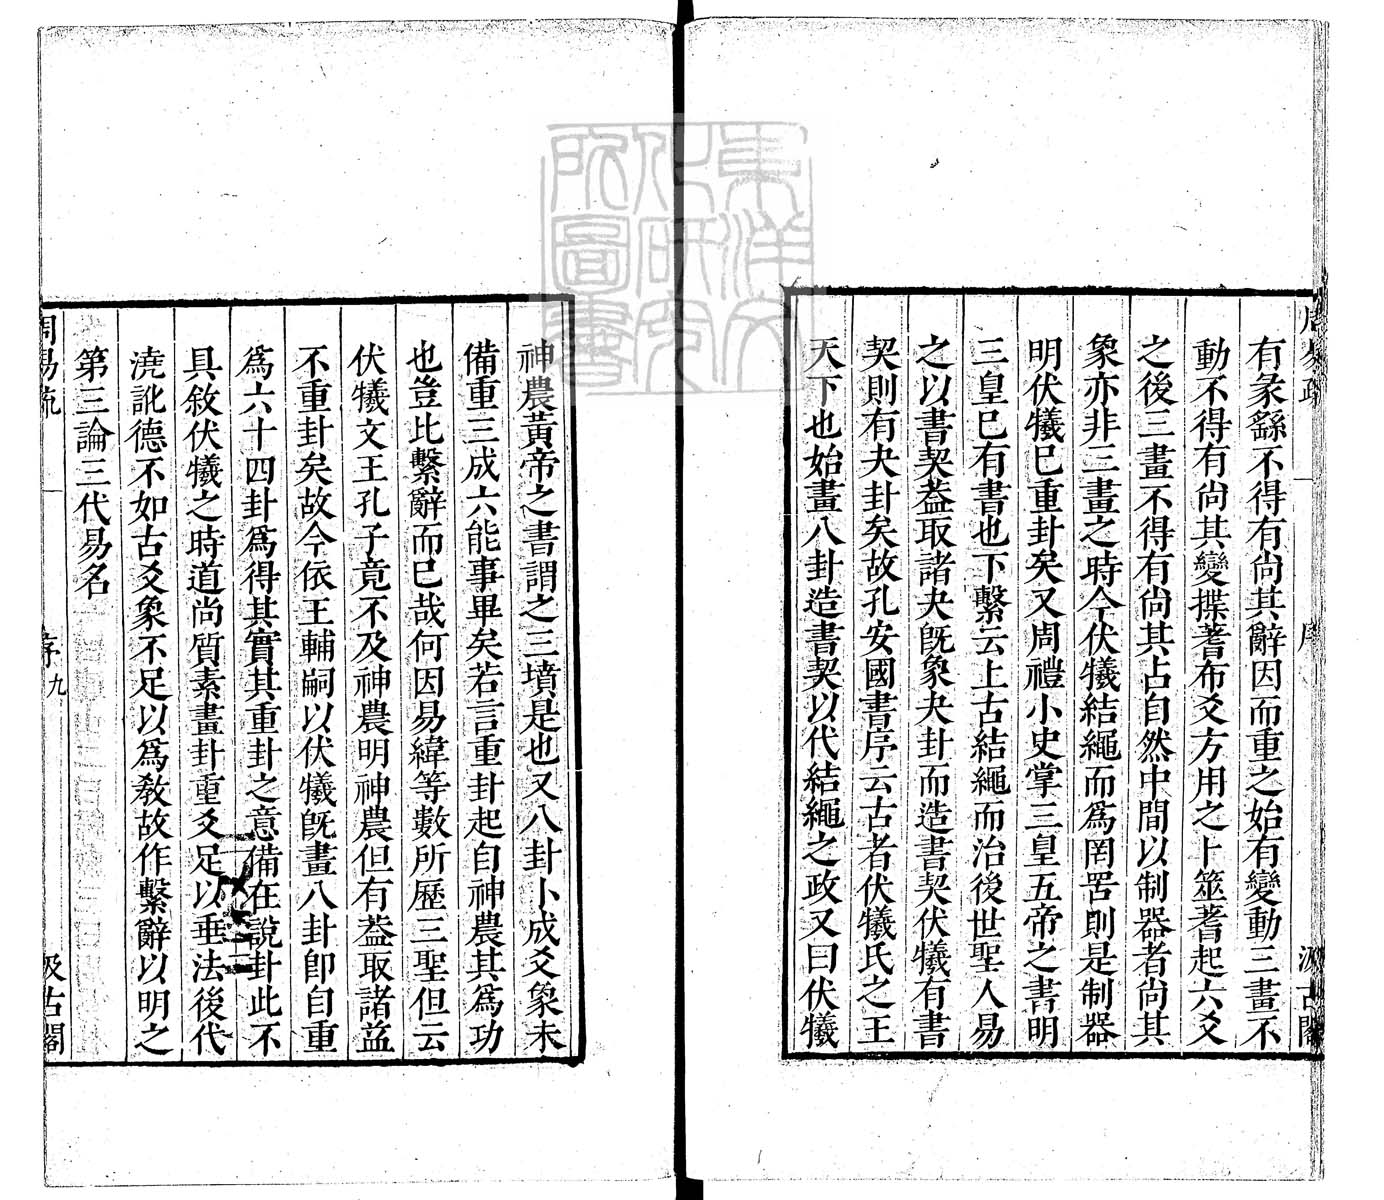 周易疏 序 汲古閣
有彖繇不得有尚其辭因而重之始有變動三畫不
動不得有尚其變揲蓍布爻方用之卜筮蓍起六爻
之後三畫不得有尚其占自然中間以制器者尚其
象亦非三畫之時今伏犧結繩而爲罔罟則是制器
明伏犧已重卦矣又周禮小史掌三皇五帝之書明
三皇已有書也下繫云上古結繩而治後世聖人易
之以書契葢取諸夬旣象夬卦而造書契伏犧有書
契則有夬卦矣故孔安國書序云古者伏犧氏之王
天下也始畫八卦造書契以代結繩之政又曰伏犧
神農黃帝之書謂之三墳是也又八卦小成爻象未
備重三成六能事畢矣若言重卦起自神農其爲功
也豈比繫辭而已哉何因易緯等數所歷三聖但云
伏犧文王孔子竟不及神農明神農但有葢取諸益
不重卦矣故今依王輔嗣以伏犧旣畫八卦卽自重
爲六十四卦爲得其實其重卦之意備在說卦此不
具敘伏犧之時道尚質素畫卦重爻足以垂法後代
澆訛德不如古爻象不足以爲敎故作繫辭以明之
第三論三代易名
周易疏 序 九 汲古閣
東洋文化研究所圖書